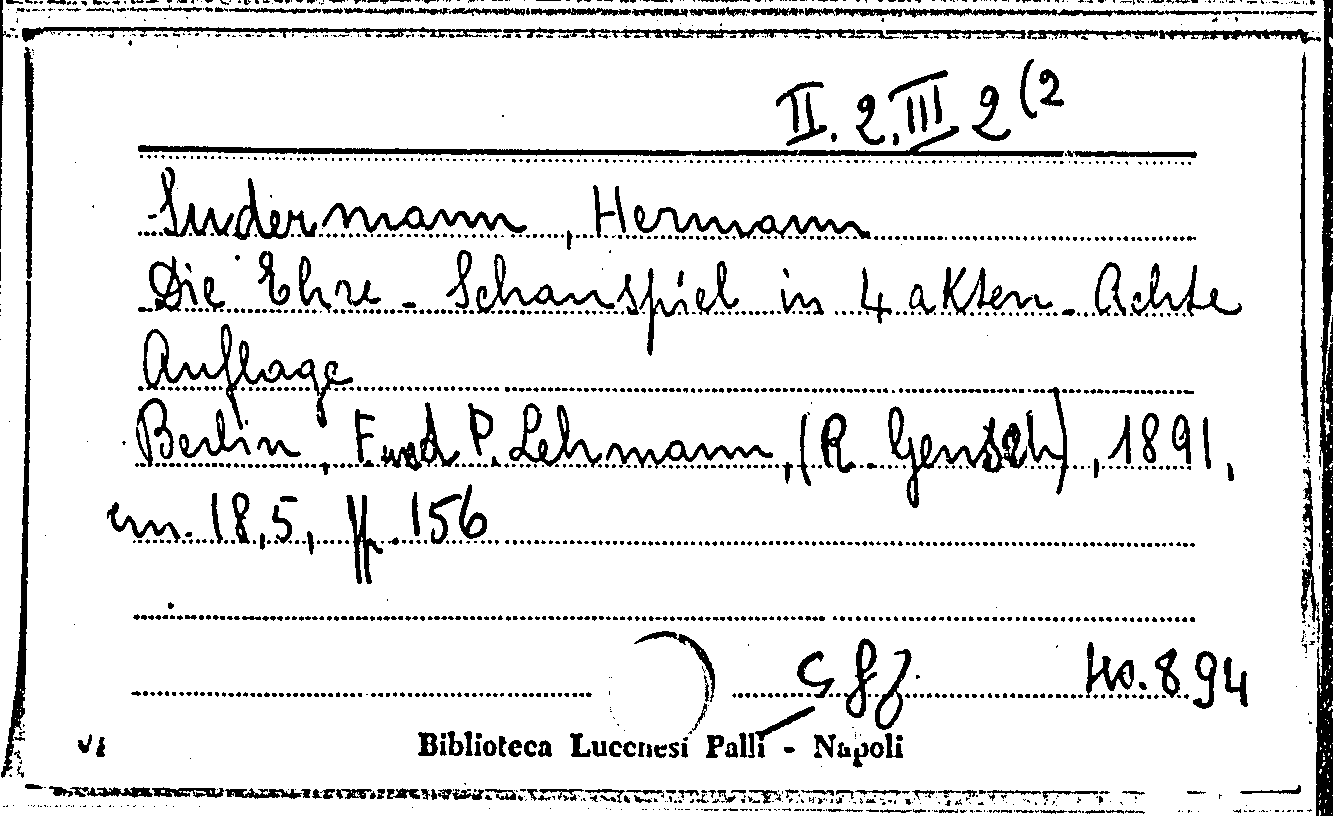 II. 2. III 2 (2
Sudermann, Hermann
Die Ehre - Schauspiel in 4 akten - Achte
Auflage
Berlin, F. und P. Lehmann, (R. Gensch), 1891,
cm. 18,5, pp. 156
40.894
Biblioteca Lucchesi Palli - Napoli